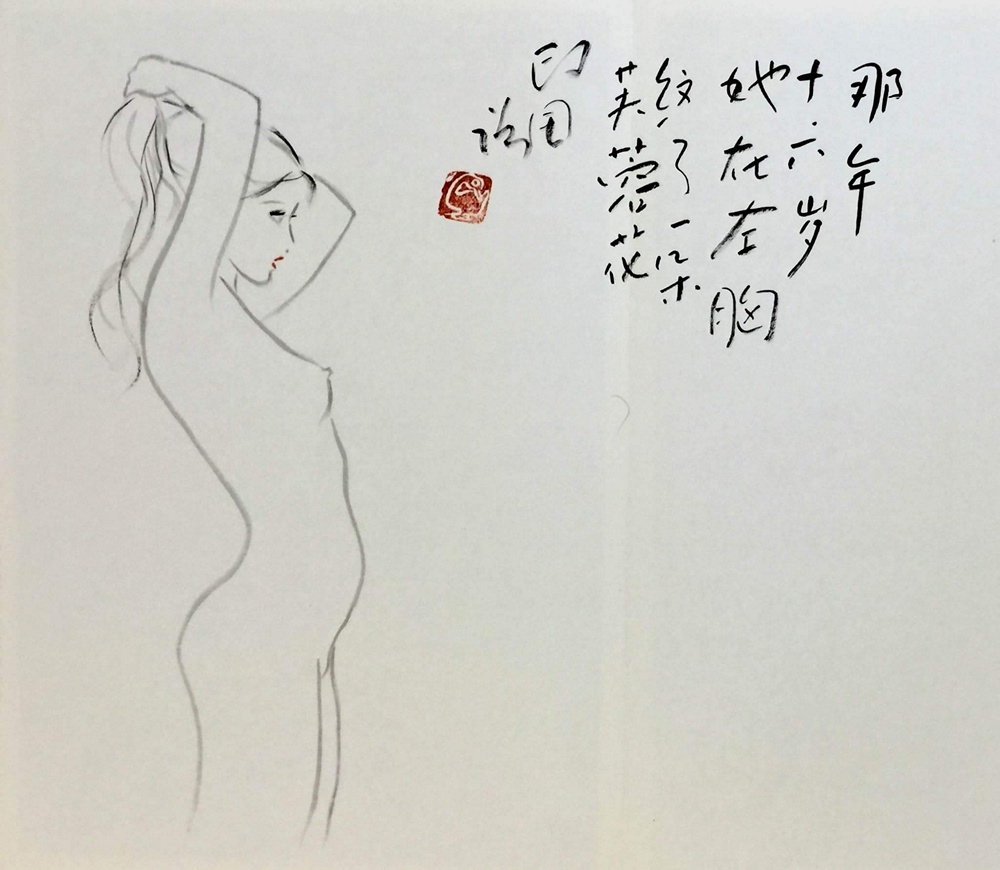 那年
十六岁
她在左胸
纹了一朵
芙蓉花